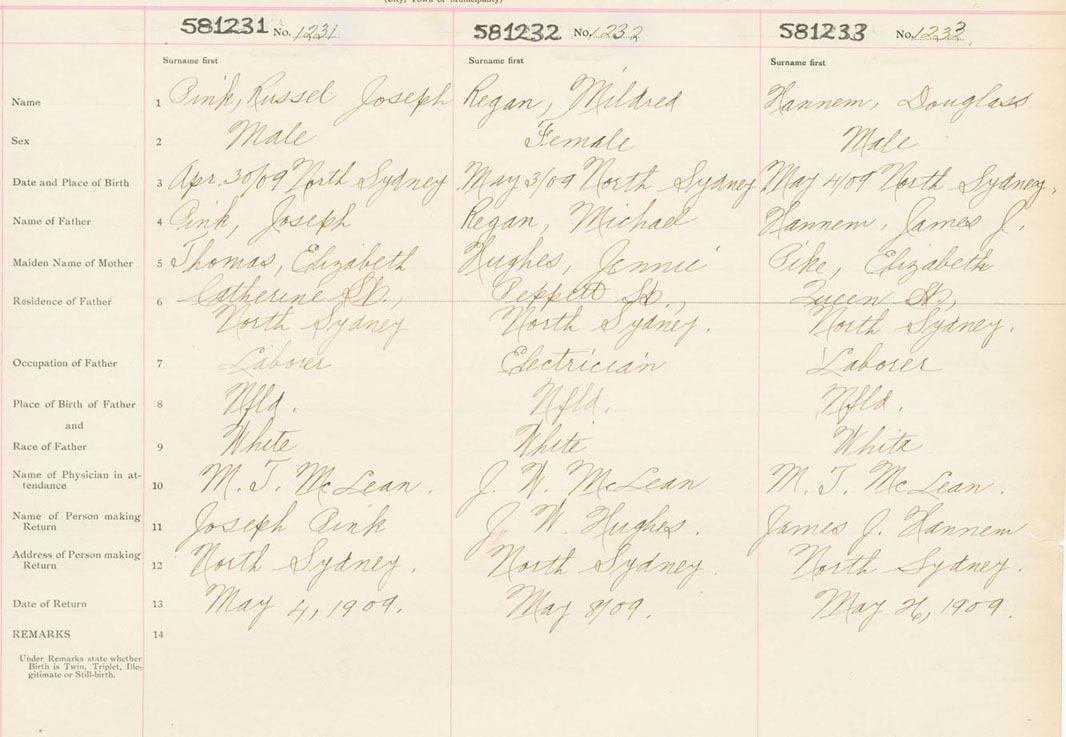 (City, Town or Municipality)
581231 No. 1231 581232 No. 1232 581233 No. 1233
Surname first Surname first Surname first
Name 1 Pink, Russel Joseph Regan, Mildred Hannem, Douglass
Sex 2 Male Female Male
Date and Place of Birth 3 Apr. 30/09 North Sydney May 3/09 North Sydney May 4/09 North Sydney.
Name of Father 4 Pink, Joseph Regan, Michael Hannem, James J.
Maiden Name of Mother 5 Thomas, Elizabeth Hughes, Jennie Pike, Elizabeth
Residence of Father 6 Catherine St., Peppett St., Queen St.,
North Sydney North Sydney. North Sydney.
Occupation of Father 7 Laborer Electrician Laborer
Place of Birth of Father 8 Nfld. Nfld. Nfld.
and
Race of Father 9 White White White
Name of Physician in at-
tendance 10 M. T. McLean. J. W. McLean M. T. McLean.
Name of Person making
Return 11 Joseph Pink J. W. Hughes. James J. Hannem
Address of Person making
Return 12 North Sydney. North Sydney. North Sydney.
Date of Return 13 May 4, 1909. May 8/09. May 26, 1909.
REMARKS 14
Under Remarks state whether
Birth is Twin, Triplet, Ille-
gitimate or Still-birth.